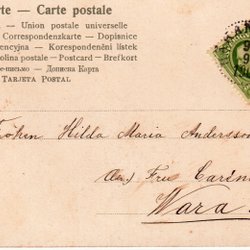 rte — Carte postale
Union postale universelle
Correspondenzkarte — Dopisnice
Korespondenční lístek
Postcard — Brefkort
Дописна Карта
TARJETA POSTAL
Fröken Hilda Maria Andersson
Fru
Wara